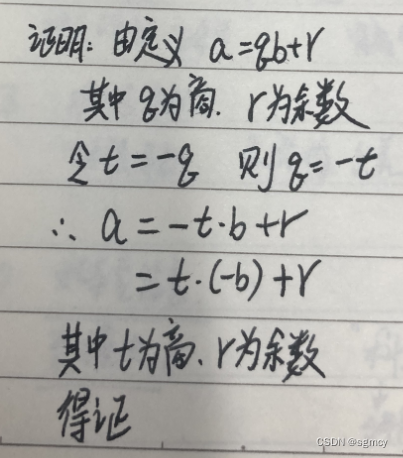 证明: 由定义 a=qb+r
其中q为商. r为余数
令t=-q 则q=-t
∴ a=-t·b+r
=t·(-b)+r
其中t为商、r为余数
得证
CSDN @sgmcy